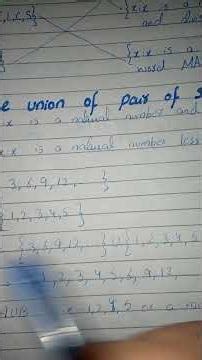 ,1,x,s}
{x:x is a
and divi
{x:x is a
word MA
e union of pair of s
x is a natural number and
x:x is a natural number less
3,6,9,12,... }
1,2,3,4,5}
{3,6,9,12,... } U {1,2,3,4,5
1,2,3,4,5,6,9,12,
AUB 1,2,4,5 or a